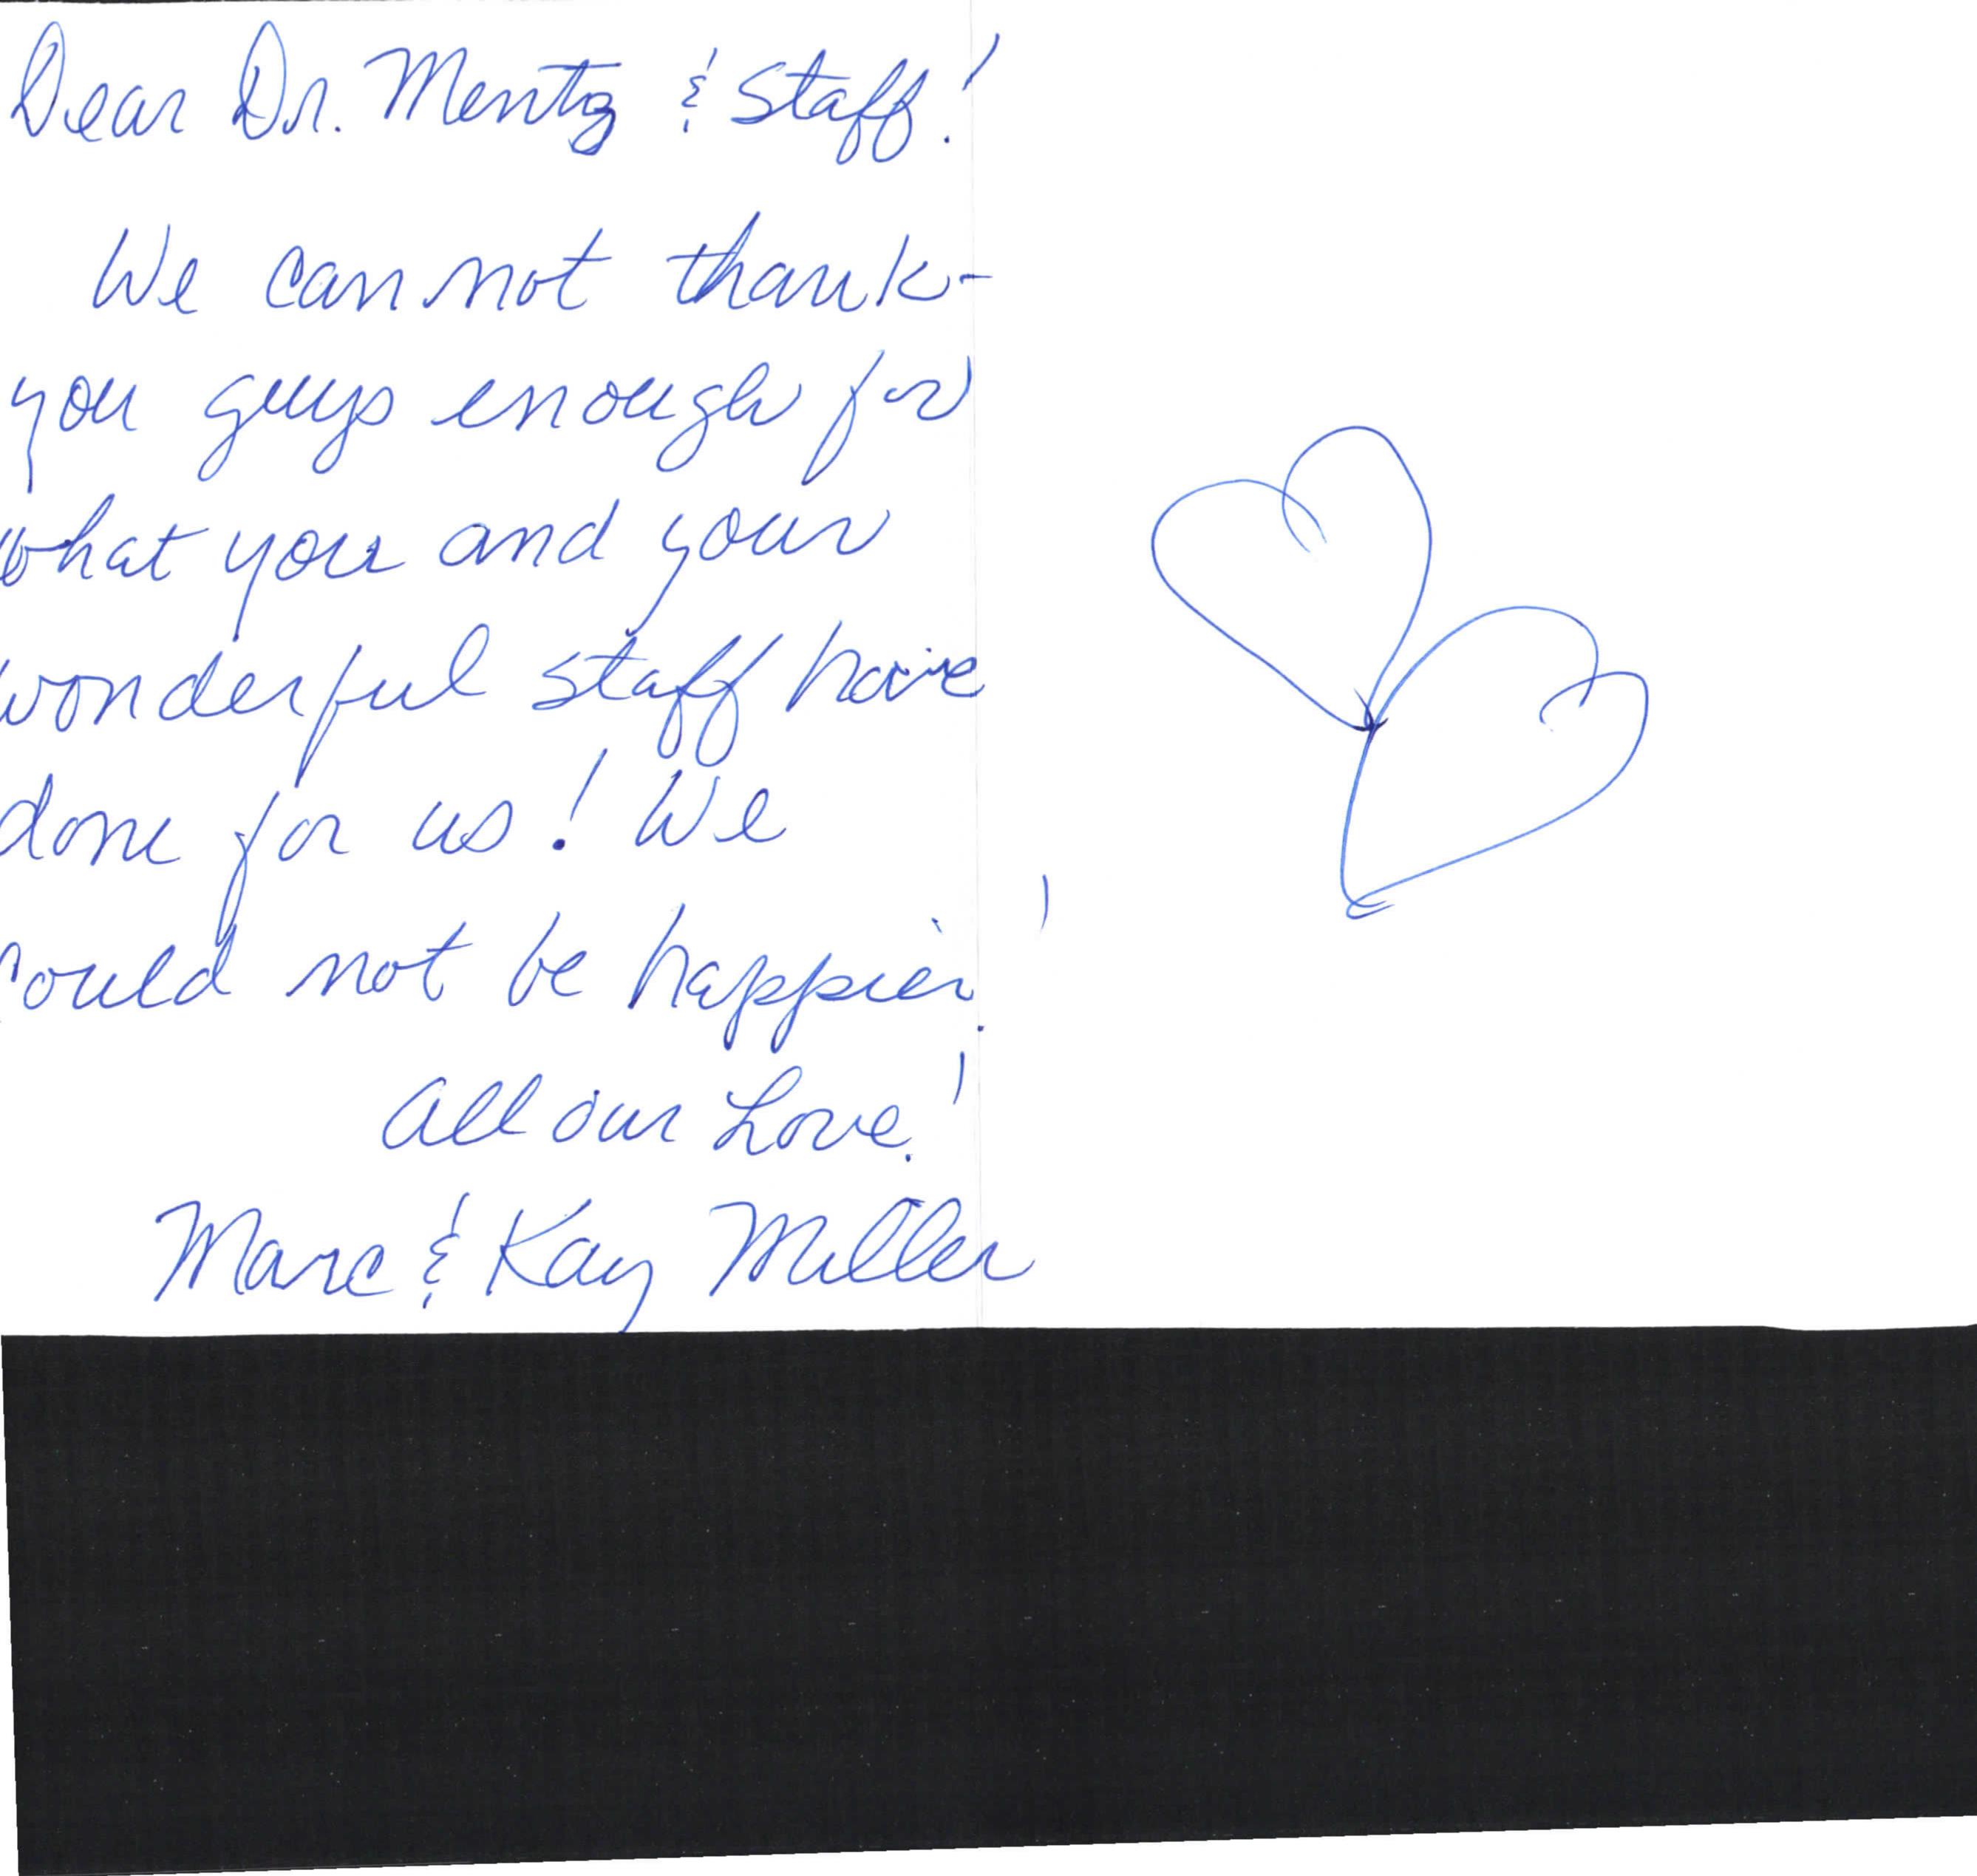 Dear Dr. Mentz & Staff!
We can not thank-
you guys enough for
what you and your
wonderful staff have
done for us! We
could not be happier!
All our Love!
Marc & Kay Miller